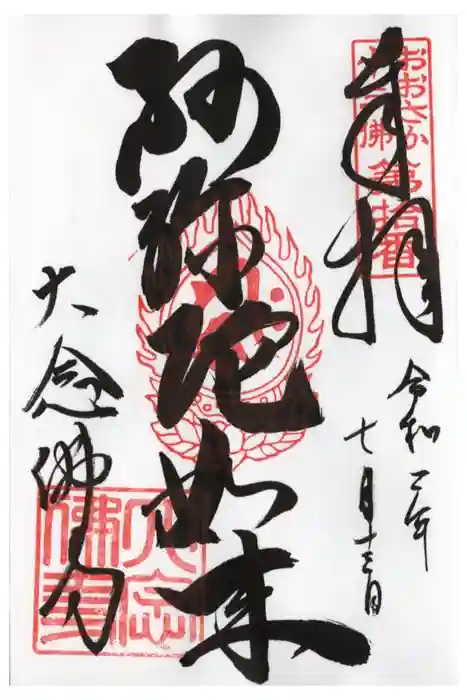 奉拝
おおさか
十三佛第拾番
令和二年
七月十三日
阿弥陀如来
大念佛寺
大念
佛寺